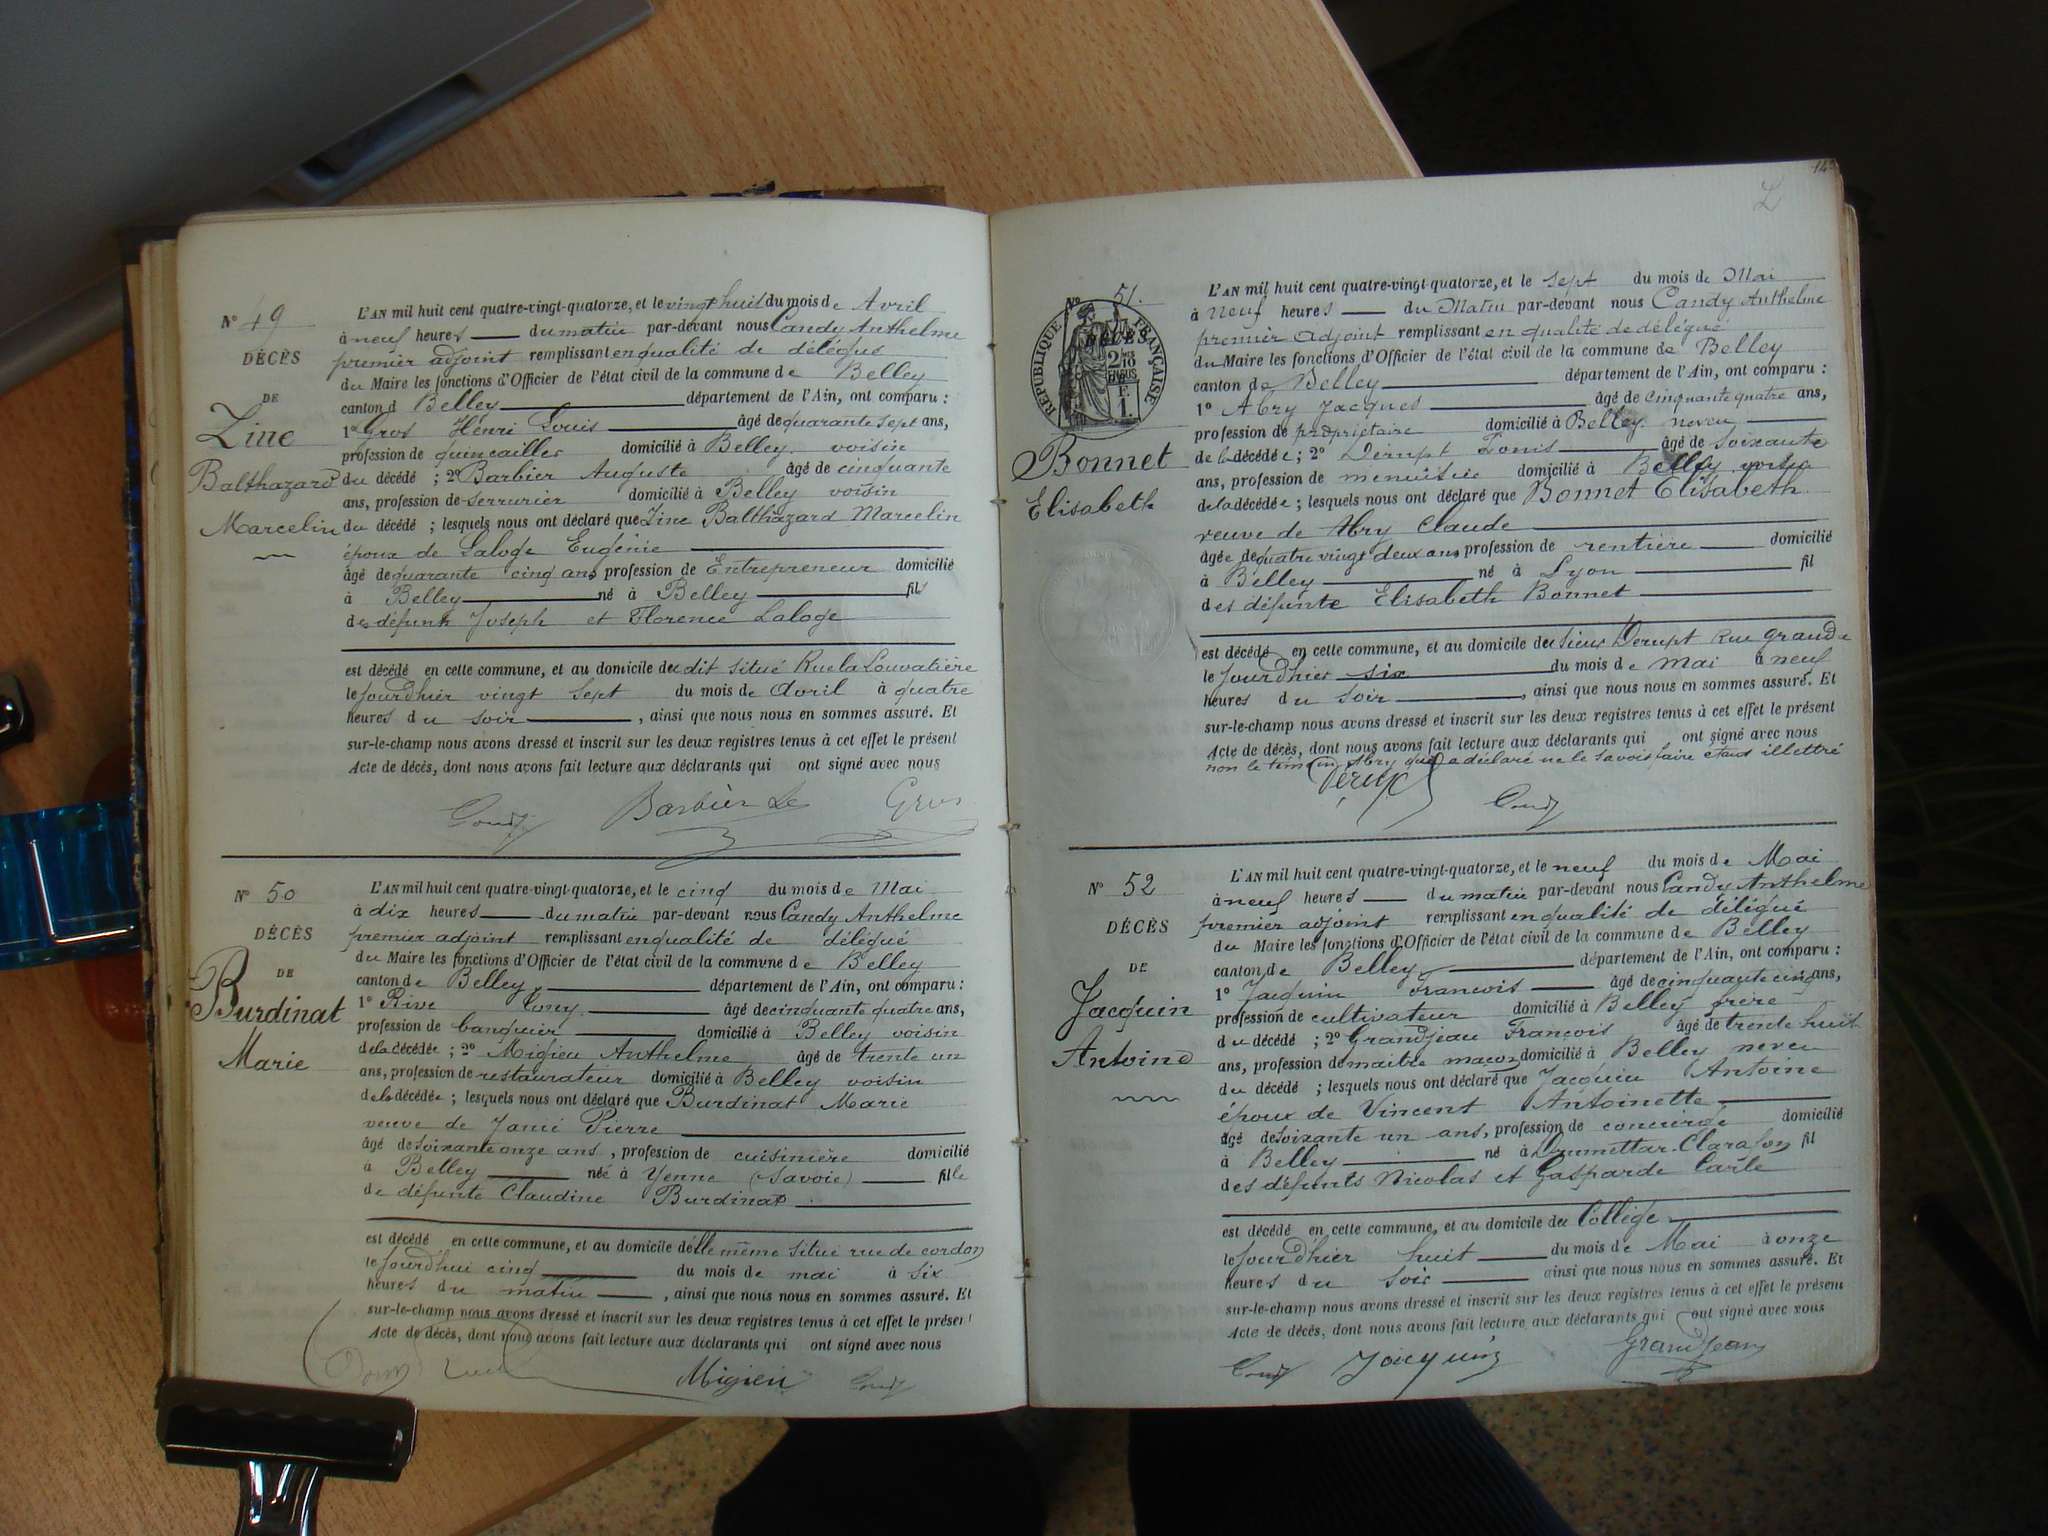 N° 49
DÉCÈS
DE
Zine
Balthazard
Marcelin
L'AN mil huit cent quatre-vingt-quatorze, et le vingt huit du mois de Avril
à neuf heures du matin par-devant nous Candy Anthelme
premier adjoint remplissant en qualité de délégué
du Maire les fonctions d'Officier de l'état civil de la commune de Belley
canton d Belley département de l'Ain, ont comparu :
1° Gros Hénri Louis âgé de quarante sept ans,
profession de quincailler domicilié à Belley voisin
du décédé ; 2° Barbier Auguste âgé de cinquante
ans, profession de serrurier domicilié à Belley voisin
du décédé ; lesquels nous ont déclaré que Zine Balthazard Marcelin
époux de Laloge Eugénie
âgé de quarante cinq ans profession de Entrepreneur domicilié
à Belley né à Belley fils
des défunts Joseph et Florence Laloge
est décédé en cette commune, et au domicile du dit situé Rue la Louvatière
le jourdhier vingt sept du mois de Avril à quatre
heures du soir , ainsi que nous nous en sommes assuré. Et
sur-le-champ nous avons dressé et inscrit sur les deux registres tenus à cet effet le présent
Acte de décès, dont nous avons fait lecture aux déclarants qui ont signé avec nous
Candy Barbier Gros
N° 50
DÉCÈS
DE
Burdinat
Marie
L'AN mil huit cent quatre-vingt-quatorze, et le cinq du mois de Mai
à dix heures du matin par-devant nous Candy Anthelme
premier adjoint remplissant en qualité de délégué
du Maire les fonctions d'Officier de l'état civil de la commune de Belley
canton de Belley département de l'Ain, ont comparu :
1° Rive âgé de cinquante quatre ans,
profession de banquier domicilié à Belley voisin
de la décédée ; 2° Migieu Anthelme âgé de trente un
ans, profession de restaurateur domicilié à Belley voisin
de la décédée ; lesquels nous ont déclaré que Burdinat Marie
veuve de Janié Pierre
âgé de soixante onze ans , profession de cuisinière domicilié
à Belley née à Yenne (Savoie) fille
de défunte Claudine Burdinat
est décédé en cette commune, et au domicile délle même situé rue de cordon
le jourdhui cinq du mois de mai à six
heures du matin , ainsi que nous nous en sommes assuré. Et
sur-le-champ nous avons dressé et inscrit sur les deux registres tenus à cet effet le présent
Acte de décès, dont nous avons fait lecture aux déclarants qui ont signé avec nous
Migieu Candy
142
N° 51.
DÉCÈS
RÉPUBLIQUE FRANÇAISE
Bonnet
Elisabeth
L'AN mil huit cent quatre-vingt-quatorze, et le sept du mois de Mai
à neuf heures du Matin par-devant nous Candy Anthelme
premier adjoint remplissant en qualité de délégué
du Maire les fonctions d'Officier de l'état civil de la commune de Belley
canton de Belley département de l'Ain, ont comparu :
1° Abry Jacques âgé de cinquante quatre ans,
profession de propriétaire domicilié à Belley neveu
de la décédée ; 2° Derupt Louis âgé de soixante
ans, profession de menuisier domicilié à Belley voisin
de la décédée ; lesquels nous ont déclaré que Bonnet Elisabeth
veuve de Abry Claude
âgée de quatre vingt deux ans profession de rentière domicilié
à Belley né à Lyon fil
des défunte Elisabeth Bonnet
est décédé en cette commune, et au domicile du sieur Derupt Rue grande
le jourdhier six du mois de mai à neuf
heures du soir , ainsi que nous nous en sommes assuré. Et
sur-le-champ nous avons dressé et inscrit sur les deux registres tenus à cet effet le présent
Acte de décès, dont nous avons fait lecture aux déclarants qui ont signé avec nous
non le témoin Abry qui a déclaré ne le savoir faire étant illettré
Derupt Candy
N° 52
DÉCÈS
DE
Jacquin
Antoine
L'AN mil huit cent quatre-vingt-quatorze, et le neuf du mois de Mai
à neuf heures du matin par-devant nous Candy Anthelme
premier adjoint remplissant en qualité de délégué
du Maire les fonctions d'Officier de l'état civil de la commune de Belley
canton de Belley département de l'Ain, ont comparu :
1° Jacquin François âgé de cinquante cinq ans,
profession de cultivateur domicilié à Belley frère
du décédé ; 2° Grandjean François âgé de trente huit
ans, profession de maitre maçon domicilié à Belley neveu
du décédé ; lesquels nous ont déclaré que Jacquin Antoine
époux de Vincent Antoinette
âgé de soixante un ans, profession de concierge domicilié
à Belley né à fil
des défunts Nicolas et Gasparde Carle
est décédé en cette commune, et au domicile du Collège
le jourdhier huit du mois de Mai à onze
heures du soir ainsi que nous nous en sommes assuré. Et
sur-le-champ nous avons dressé et inscrit sur les deux registres tenus à cet effet le présent
Acte de décès, dont nous avons fait lecture aux déclarants qui ont signé avec nous
Candy Jacquin Grandjean